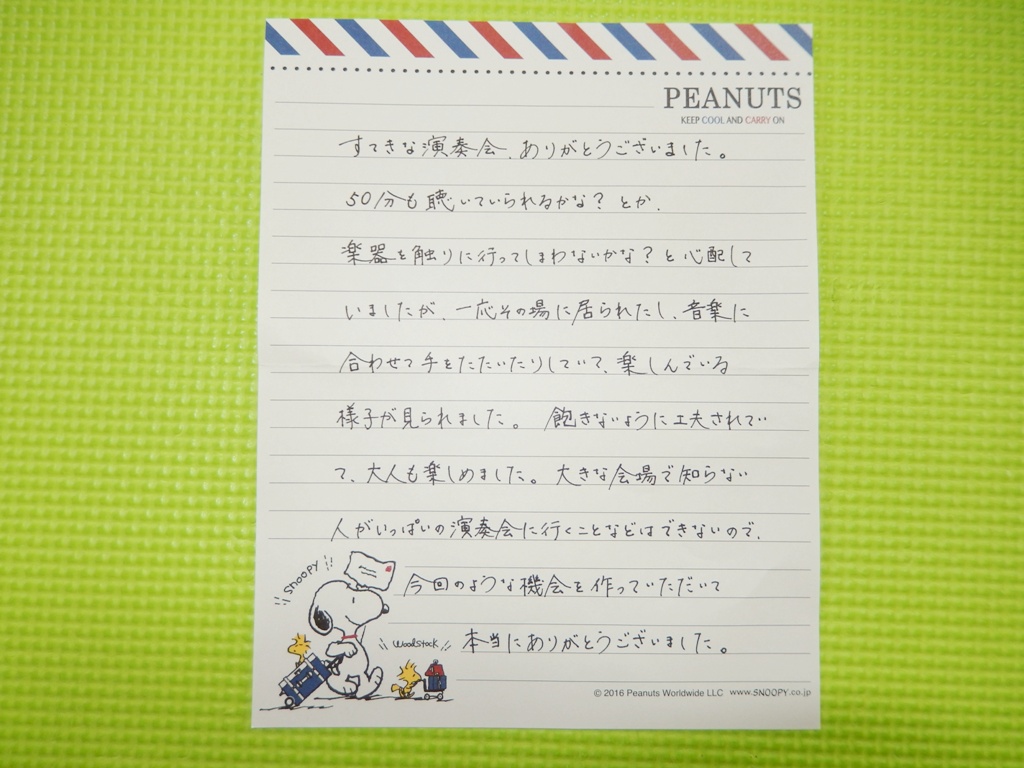 PEANUTS
KEEP COOL AND CARRY ON
すてきな演奏会、ありがとうございました。
50分も聴いていられるかな？とか、
楽器を触りに行ってしまわないかな？と心配して
いましたが、一応その場に居られたし、音楽に
合わせて手をたたいたりしていて、楽しんでいる
様子が見られました。飽きないように工夫されてい
て、大人も楽しめました。大きな会場で知らない
人がいっぱいの演奏会に行くことなどはできないので、
今回のような機会を作っていただいて
本当にありがとうございました。
SNOOPY
Woodstock
© 2016 Peanuts Worldwide LLC www.SNOOPY.co.jp